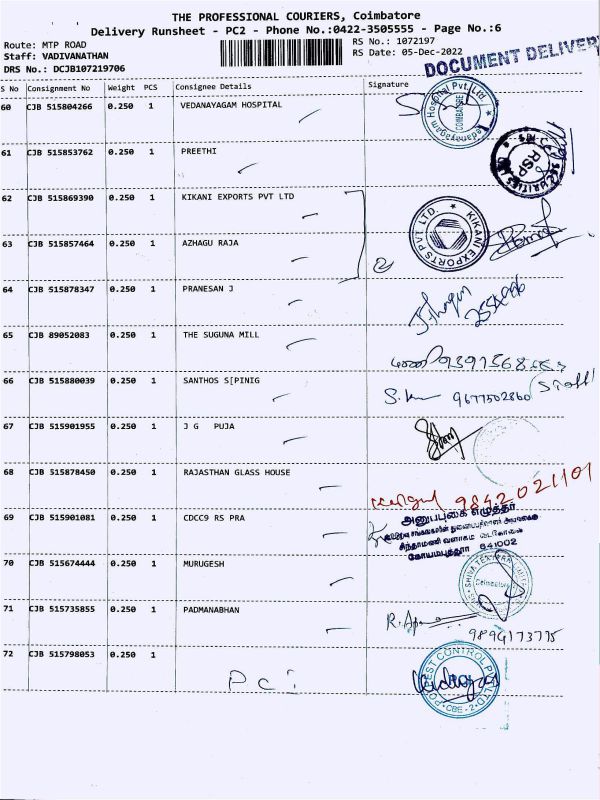 THE PROFESSIONAL COURIERS, Coimbatore
Delivery Runsheet - PC2 - Phone No.:0422-3505555 - Page No.:6
Route: MTP ROAD
RS No.: 1072197
Staff: VADIVANATHAN
RS Date: 05-Dec-2022
DRS No.: DCJB107219706
DOCUMENT DELIVER
S No Consignment No Weight PCS Consignee Details Signature
60 CJB 515804266 0.250 1 VEDANAYAGAM HOSPITAL
Vedanayagam Hospital Pvt. Ltd.
COIMBATORE
61 CJB 515853762 0.250 1 PREETHI
RSP
62 CJB 515869390 0.250 1 KIKANI EXPORTS PVT LTD
KIKANI EXPORTS PVT LTD.
63 CJB 515857464 0.250 1 AZHAGU RAJA
64 CJB 515878347 0.250 1 PRANESAN J
65 CJB 89052083 0.250 1 THE SUGUNA MILL
66 CJB 515880039 0.250 1 SANTHOS S[PINIG
9677502860
67 CJB 515901955 0.250 1 J G PUJA
68 CJB 515878450 0.250 1 RAJASTHAN GLASS HOUSE
9842021101
69 CJB 515901081 0.250 1 CDCC9 RS PRA
அனுபபுகை எழுத்தர்
கோயமபுத்தூர் 641002
70 CJB 515674444 0.250 1 MURUGESH
Coimbatore
71 CJB 515735855 0.250 1 PADMANABHAN
9894173775
72 CJB 515798053 0.250 1
PCI
PEST CONTROL PVT LTD
CBE - 2